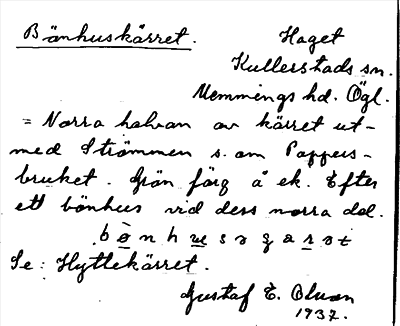 Bänhuskärret. Haget
Kullerstads sn.
Memmings hd. Ögl.
= Norra halvan av kärret ut-
med Strömmen s. om Pappers-
bruket. Grön färg å ek. Efter
ett bönhus vid dess norra del.
Se: Hyttekärret.
Gustaf E. Olsson
1937.